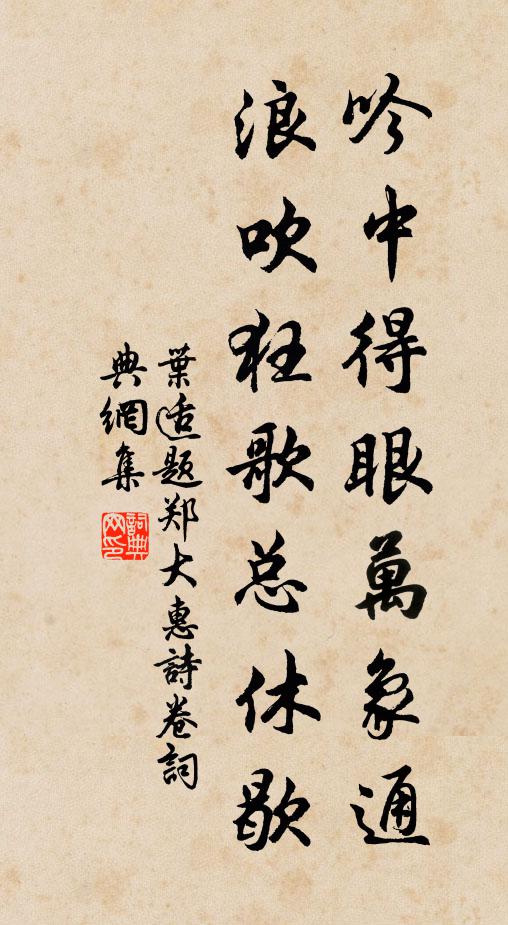 吟中得眼萬象通
浪吹狂歌总休歇
葉適题郑大惠詩卷詞
典網集
詞典网印